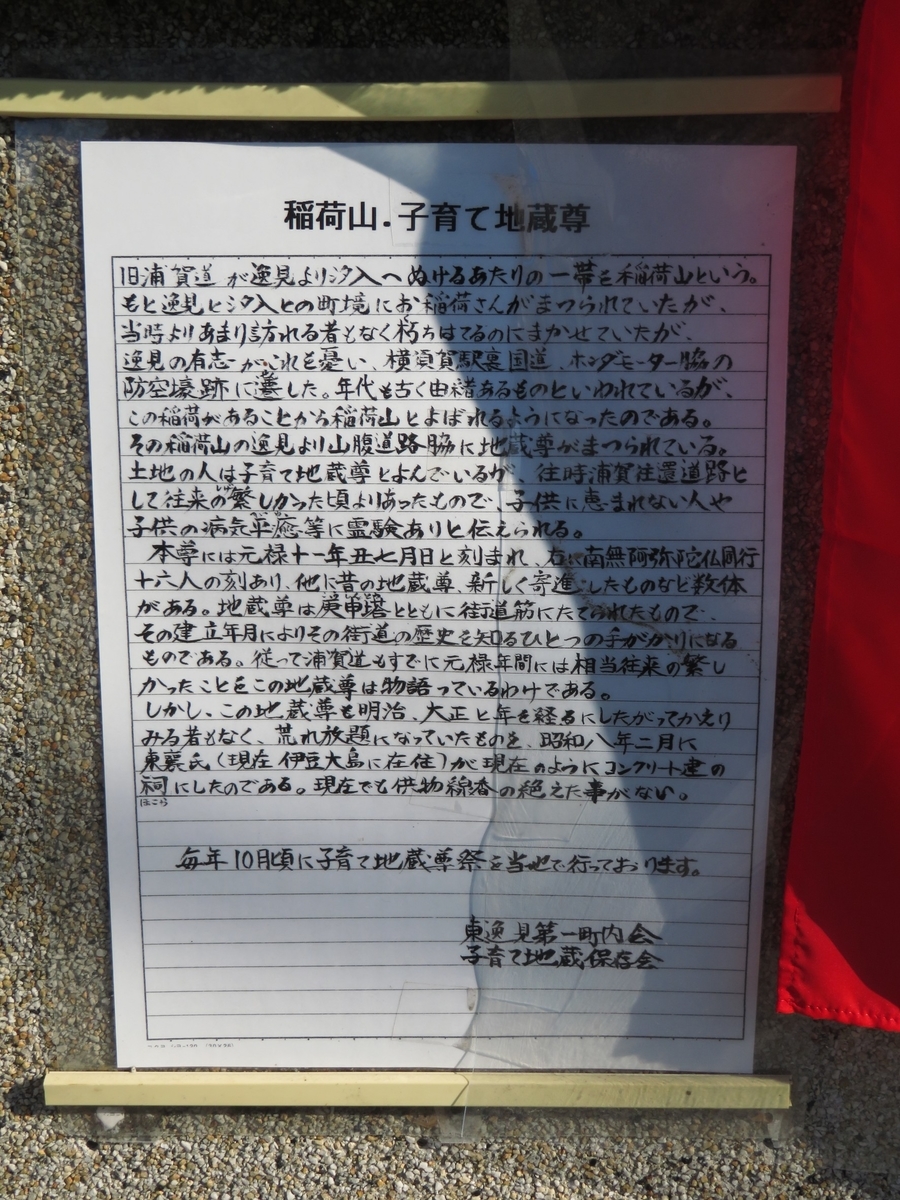 稲荷山.子育て地蔵尊
旧浦賀道が逸見より汐入へぬけるあたりの一帯を稲荷山という。
もと逸見と汐入との町境にお稲荷さんがまつられていたが、
当時よりあまり訪れる者もなく朽ちはてるのにまかせていたが、
逸見の有志がこれを憂い、横須賀駅裏国道、ホンダモーター脇の
防空壕跡に遷した。年代も古く由緒あるものといわれているが、
この稲荷があることから稲荷山とよばれるようになったのである。
その稲荷山の逸見より山腹道路脇に地蔵尊がまつられている。
土地の人は子育て地蔵尊とよんでいるが、往時浦賀往還道路と
して往来の繁しかった頃よりあったもので、子供に恵まれない人や
子供の病気平癒等に霊験ありと伝えられる。
本尊には元禄十一年丑七月日と刻まれ、右に南無阿弥陀仏同行
十六人の刻あり、他に昔の地蔵尊、新しく寄進したものなど数体
がある。地蔵尊は庚申塔とともに街道筋にたてられたもので、
その建立年月によりその街道の歴史を知るひとつの手がかりになる
ものである。従って浦賀道もすでに元禄年間には相当往来の繁し
かったことをこの地蔵尊は物語っているわけである。
しかし、この地蔵尊も明治、大正と年を経るにしたがってかえり
みる者もなく、荒れ放題になっていたものを、昭和八年二月に
東襄氏(現在伊豆大島に在住)が現在のようにコンクリート建の
祠にしたのである。現在でも供物線香の絶えた事がない。
ほこら
毎年10月頃に子育て地蔵尊祭を当地で行っております。
東逸見第一町内会
子育て地蔵保存会